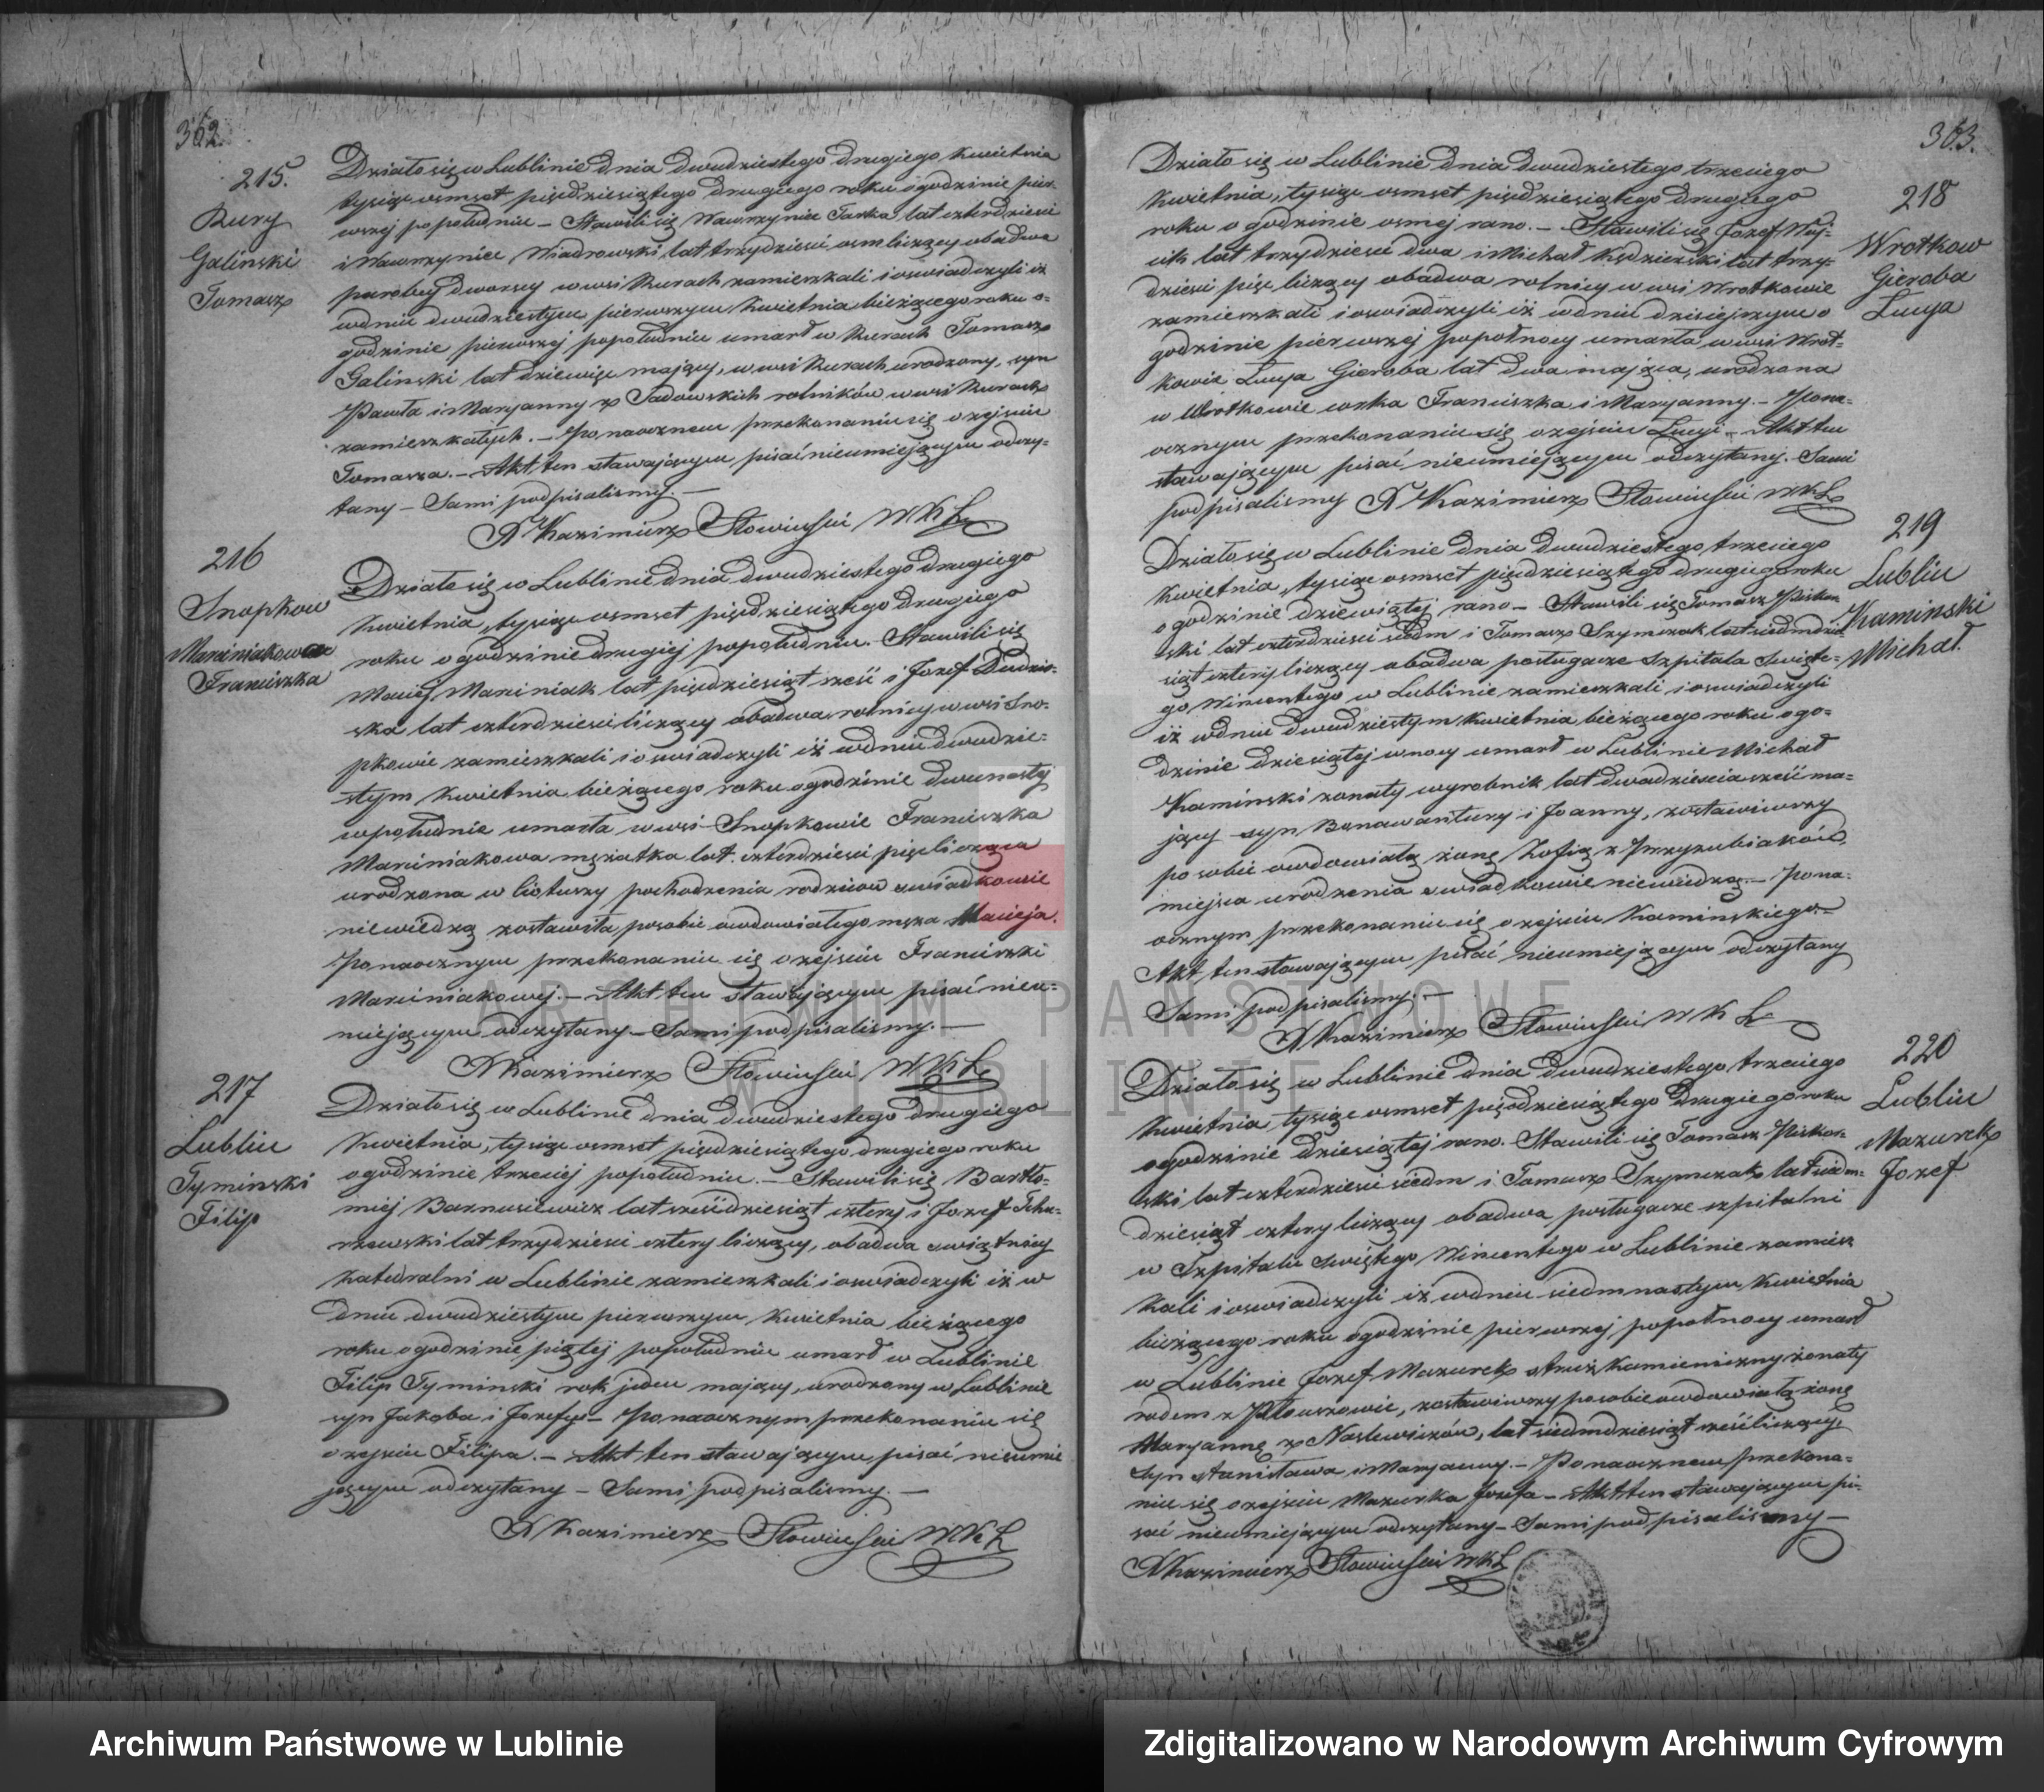 362.
215.
Rury
Galinski
Tomasz
Działo się w Lublinie dnia dwudziestego drugiego Kwietnia
tysiąc osmset pięśdziesiątego drugiego roku o godzinie pier-
wszej po południu – Stawili się Wawrzyniec Tarka lat czterdzieści
i Wawrzyniec Wiadrowski lat trzydzieści osm liczący obadwa
parobcy dworscy w wsi Rurach zamieszkali i oswiadczyli iż
w dniu dwudziestym pierwszym Kwietnia bieżącego roku o-
godzinie pierwszej popołudniu umarł w Rurach Tomasz
Galinski lat dziewięć mający, w wsi Rurach urodzony, syn
Pawła i Maryanny z Sadowskich rolników w wsi Rurach
zamieszkałych. – Po naocznem przekonaniu się o zejsciu
Tomasza. – Akt ten stawającym pisać nieumiejącym odczy-
tany – Sami podpisalismy. –
X Kazimierz Słowiński WKL
216
Snopkow
Marciniakowa
Franciszka
Działo się w Lublinie dnia dwudziestego drugiego
Kwietnia, tysiąc osmset pięśdziesiątego drugiego
roku o godzinie drugiej popołudniu. Stawili się
Maciej Marciniak lat pięśdziesiąt sześć i Jozef
lat czterdzieści liczący obadwa rolnicy w wsi Sno-
pkowie zamieszkali i oswiadczyli iż w dniu dwudzie-
stym Kwietnia bieżącego roku o godzinie dwunastej
w południe umarła w wsi Snopkowie Franciszka
Marciniakowa mężatka lat czterdzieści pięć licząca
urodzona w pochodzenia rodziców swiadkowie
niewiedzą zostawiła po sobie owdowiałego męża Macieja.
Po naocznym przekonaniu się o zejsciu Franciszki
Marciniakowej. – Akt ten stawającym pisać nieu-
miejącym odczytany – Sami podpisalismy. –
X Kazimierz Słowiński WKL
217
Lublin
Tyminski
Filip
Działo się w Lublinie dnia dwudziestego drugiego
Kwietnia, tysiąc osmset pięśdziesiątego drugiego roku
o godzinie trzeciej popołudniu. – Stawili się Bartło-
miej Barnusiewicz lat sześćdziesiąt cztery i Jozef Tchu-
rzewski lat trzydzieści cztery liczący, obadwa swiątnicy
Katedralni w Lublinie zamieszkali i oswiadczyli iż w
dniu dwudziestym pierwszym Kwietnia bieżącego
roku o godzinie piątej popołudniu umarł w Lublinie
Filip Tyminski rok jeden mający, urodzony w Lublinie
syn Jakoba i Jozefy – Po naocznym przekonaniu się
o zejsciu Filipa. – Akt ten stawającym pisać nieumie
jącym odczytany – Sami podpisalismy. –
X Kazimierz Słowiński WKL
363.
218
Wrotkow
Gieroba
Łucya
Działo się w Lublinie dnia dwudziestego trzeciego
Kwietnia, tysiąc osmset pięśdziesiątego drugiego
roku o godzinie osmej rano. – Stawili się Jozef Woj-
cik lat trzydzieści dwa i Michał Kędzierski lat trzy-
dzieści pięć liczący obadwa rolnicy w wsi Wrotkowie
zamieszkali i oswiadczyli iż w dniu dzisiejszym o
godzinie pierwszej popołnocy umarła w wsi Wrot-
kowie Łucya Gieroba lat dwa mająca, urodzona
w Wrotkowie corka Franciszka i Maryanny. – Po na-
ocznym przekonaniu się o zejsciu Łucyi – Akt ten
stawającym pisać nieumiejącym odczytany. Sami
podpisalismy X Kazimierz Słowiński WKL
219
Lublin
Kaminski
Michał.
Działo się w Lublinie dnia dwudziestego trzeciego
Kwietnia, tysiąc osmset pięśdziesiątego drugiego roku
o godzinie dziewiątej rano – Stawili się Tomasz Piskor
ski lat czterdzieści siedm i Tomasz Szymczak lat siedmdzie
siąt cztery liczący obadwa posługacze Szpitala Swięte-
go Wincentego w Lublinie zamieszkali i oswiadczyli
iż w dniu dwudziestym Kwietnia bieżącego roku o go-
dzinie dziesiątej w nocy umarł w Lublinie Michał
Kaminski żonaty wyrobnik lat dwadzieścia sześć ma-
jący syn Bonawantury i Joanny, zostawiwszy
po sobie owdowiałą żonę Zofią z Przyzubiaków,
miejsca urodzenia swiadkowie niewiedzą. – Po na-
ocznym przekonaniu się o zejsciu Kaminskiego. –
Akt ten stawającym pisać nieumiejącym odczytany
Sami podpisalismy. –
X Kazimierz Słowiński WKL
220
Lublin
Mazurek
Jozef
Działo się w Lublinie dnia dwudziestego trzeciego
Kwietnia tysiąc osmset pięśdziesiątego drugiego roku
o godzinie dziesiątej rano. Stawili się Tomasz Piskor-
ski lat czterdzieści siedm i Tomasz Szymczak lat siedm-
dziesiąt cztery liczący obadwa posługacze szpitalni
w Szpitalu Swiętego Wincentego w Lublinie zamiesz
kali i oswiadczyli iż w dniu siedmnastym Kwietnia
bieżącego roku o godzinie pierwszej popołnocy umarł
w Lublinie Jozef Mazurek stroż kamieniczny żonaty
rodem z Płouszowic, zostawiwszy po sobie owdowiałą żonę
Maryannę z Naslewiczów, lat siedmdziesiąt sześć liczący,
syn Stanisława i Maryanny. – Po naocznem przekona-
niu się o zejsciu Mazurka Jozefa – Akt ten stawającym pi-
sać nieumiejącym odczytany – Sami podpisalismy –
X Kazimierz Słowiński WKL
ARCHIWUM PAŃSTWOWE
W LUBLINIE
Archiwum Państwowe w Lublinie
Zdigitalizowano w Narodowym Archiwum Cyfrowym